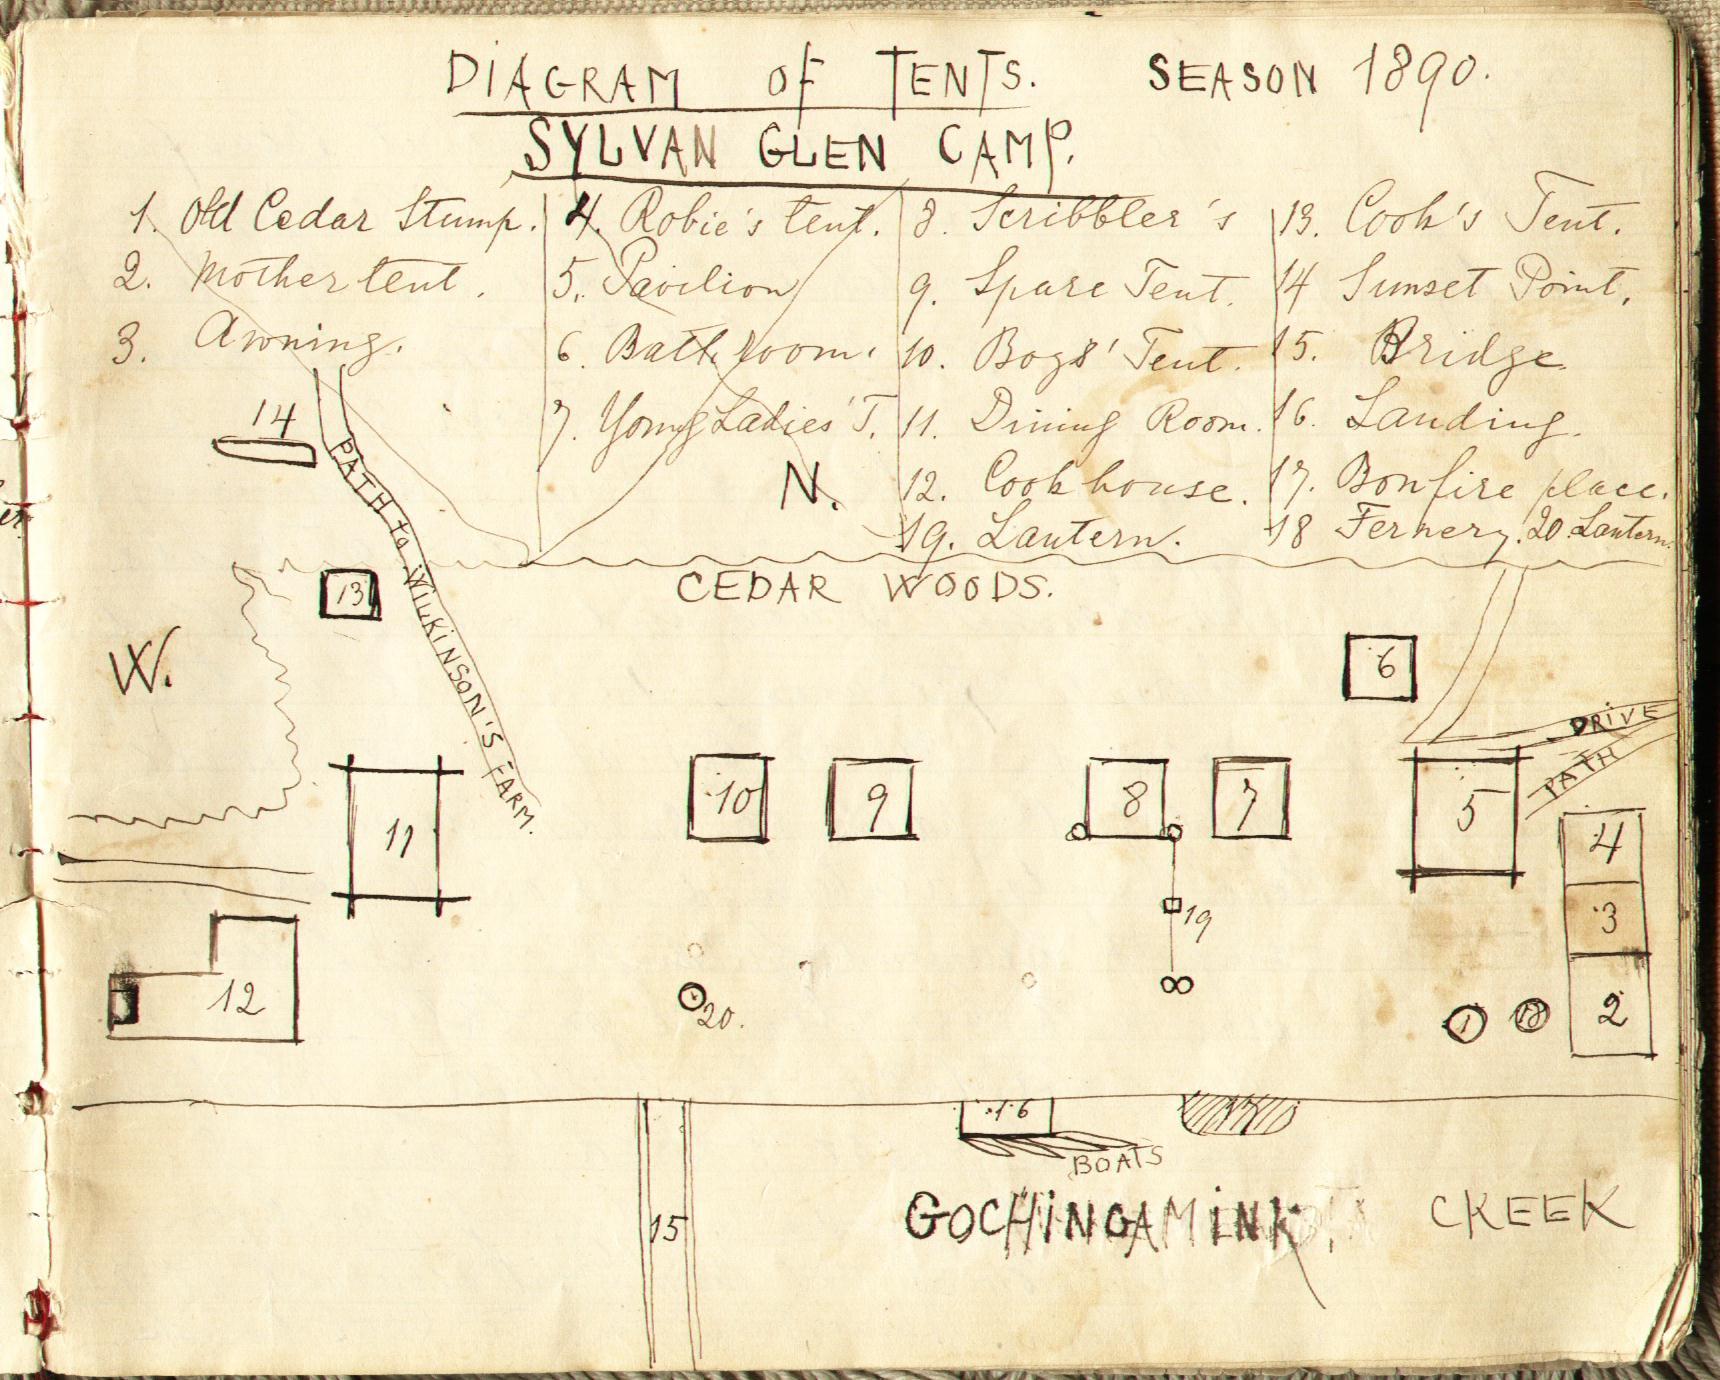 DIAGRAM OF TENTS. SEASON 1890.
SYLVAN GLEN CAMP.
1. Old Cedar Stump.
2. Mother tent.
3. Awning.
4. Robie's tent.
5. Pavilion
6. Bath room.
7. Young Ladies' T.
8. Scribbler's
9. Spare Tent.
10. Boys' Tent.
11. Dining Room.
12. Cook house.
19. Lantern.
13. Cook's Tent.
14 Sunset Point.
15. Bridge.
16. Landing.
17. Bonfire place.
18 Fernery. 20 Lantern.
14
PATH to WILKINSON'S FARM.
N.
CEDAR WOODS.
13
W.
6
DRIVE
PATH
11
10
9
8
7
5
4
3
19
12
20.
1
18
2
16
17
BOATS
15
GOCHINGAMINK CREEK